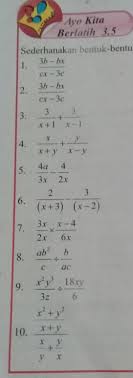 Ayo Kita
Berlatih 3.5
Sederhanakan bentuk-bentu
1. (3b − bx)/(cx − 3c)
2. (3b − bx)/(cx − 3c)
3. 3/(x+1) + 3/(x−1)
4. x/(x+y) + y/(x−y)
5. 4a/3x − 4/2x
6. 2/(x+3) − 3/(x−2)
7. 3x/2x × (x−4)/6x
8. ab²/c ÷ b/ac
9. x²y³/3z ÷ 18xy/6
10. ((x²+y²)/(x+y))/(x/y + y/x)